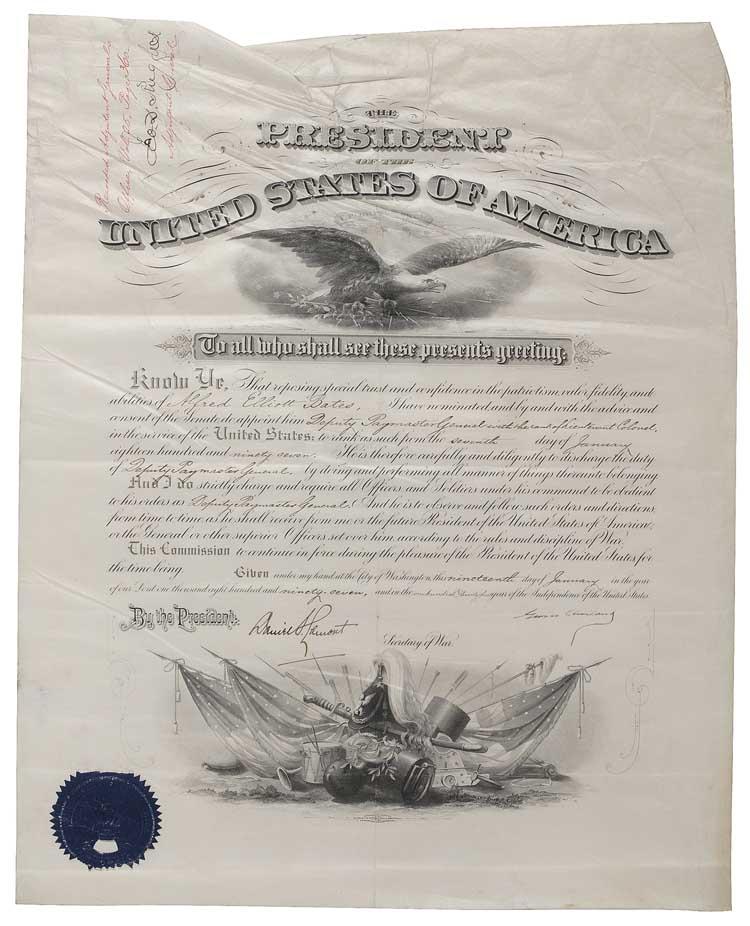 THE
PRESIDENT
OF THE
UNITED STATES OF AMERICA
To all who shall see these presents greeting:
Know Ye, That reposing special trust and confidence in the patriotism, valor, fidelity, and
abilities of Alfred Elliott Bates, I have nominated and by and with the advice and
consent of the Senate do appoint him Deputy Paymaster General with the rank of Lieutenant Colonel,
in the service of the United States: to rank as such from the seventh day of January
eighteen hundred and ninety seven. He is therefore carefully and diligently to discharge the duty
of Deputy Paymaster General by doing and performing all manner of things thereunto belonging.
And I do strictly charge and require all Officers and Soldiers under his command to be obedient
to his orders as Deputy Paymaster General. And he is to observe and follow such orders and directions,
from time to time, as he shall receive from me or the future President of the United States of America,
or the General or other superior Officers set over him, according to the rules and discipline of War.
This Commission to continue in force during the pleasure of the President of the United States for
the time being. Given under my hand at the City of Washington, this nineteenth day of January in the year
of our Lord one thousand eight hundred and ninety seven, and in the one hundred and twenty first year of the Independence of the United States.
By the President:
Daniel S. Lamont
Secretary of War